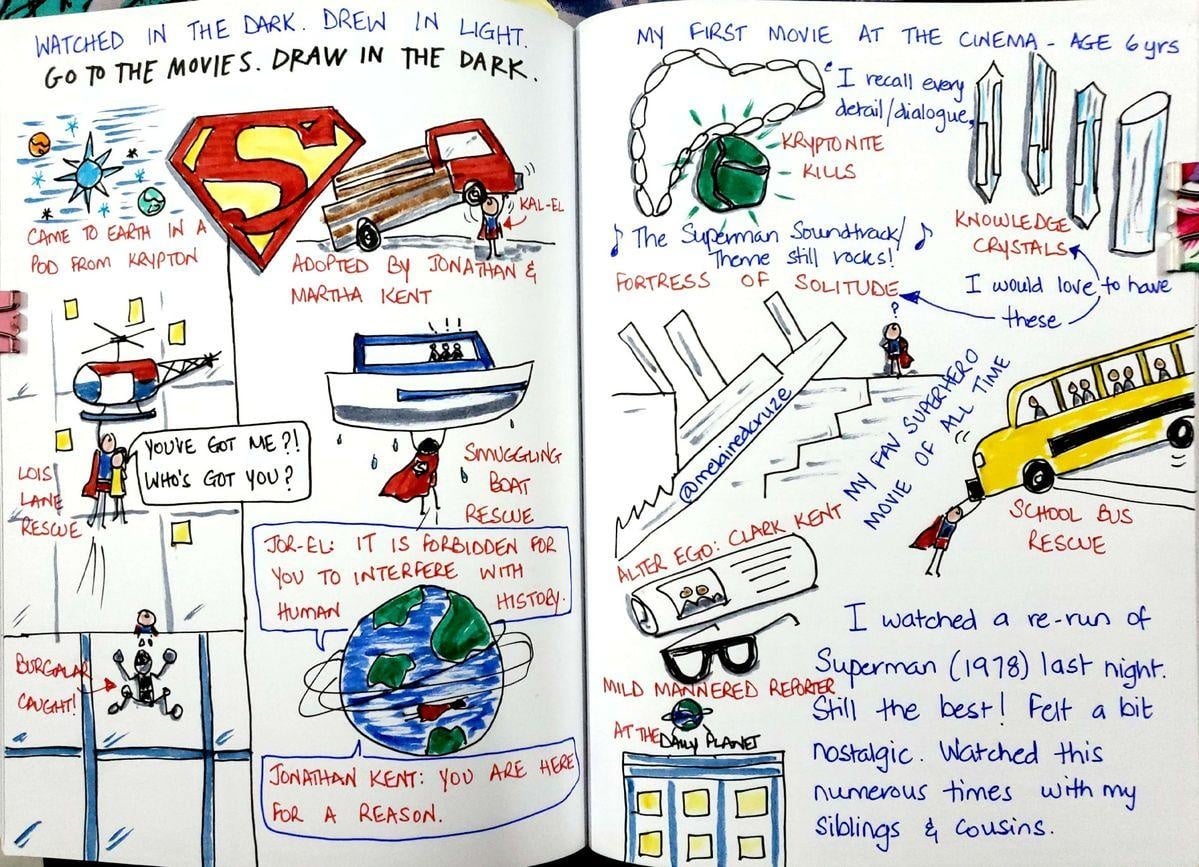 WATCHED IN THE DARK. DREW IN LIGHT.
GO TO THE MOVIES. DRAW IN THE DARK.
S
CAME TO EARTH IN A
POD FROM KRYPTON
KAL-EL
ADOPTED BY JONATHAN &
MARTHA KENT
YOU'VE GOT ME?!
WHO'S GOT YOU?
LOIS
LANE
RESCUE
!!!
SMUGGLING
BOAT
RESCUE
JOR-EL: IT IS FORBIDDEN FOR
YOU TO INTERFERE WITH
HUMAN HISTORY.
BURGALAR
CAUGHT!
JONATHAN KENT: YOU ARE HERE
FOR A REASON.
MY FIRST MOVIE AT THE CINEMA - AGE 6 yrs
I recall every
detail/dialogue.
KRYPTONITE
KILLS
KNOWLEDGE
CRYSTALS
♪ The Superman Soundtrack/ ♪
Theme still rocks!
FORTRESS OF SOLITUDE
I would love to have
these
?
@melainedcruze
MY FAV SUPERHERO
MOVIE OF ALL TIME
SCHOOL BUS
RESCUE
ALTER EGO: CLARK KENT
MILD MANNERED REPORTER
AT THE DAILY PLANET
I watched a re-run of
Superman (1978) last night.
Still the best! Felt a bit
nostalgic. Watched this
numerous times with my
siblings & cousins.